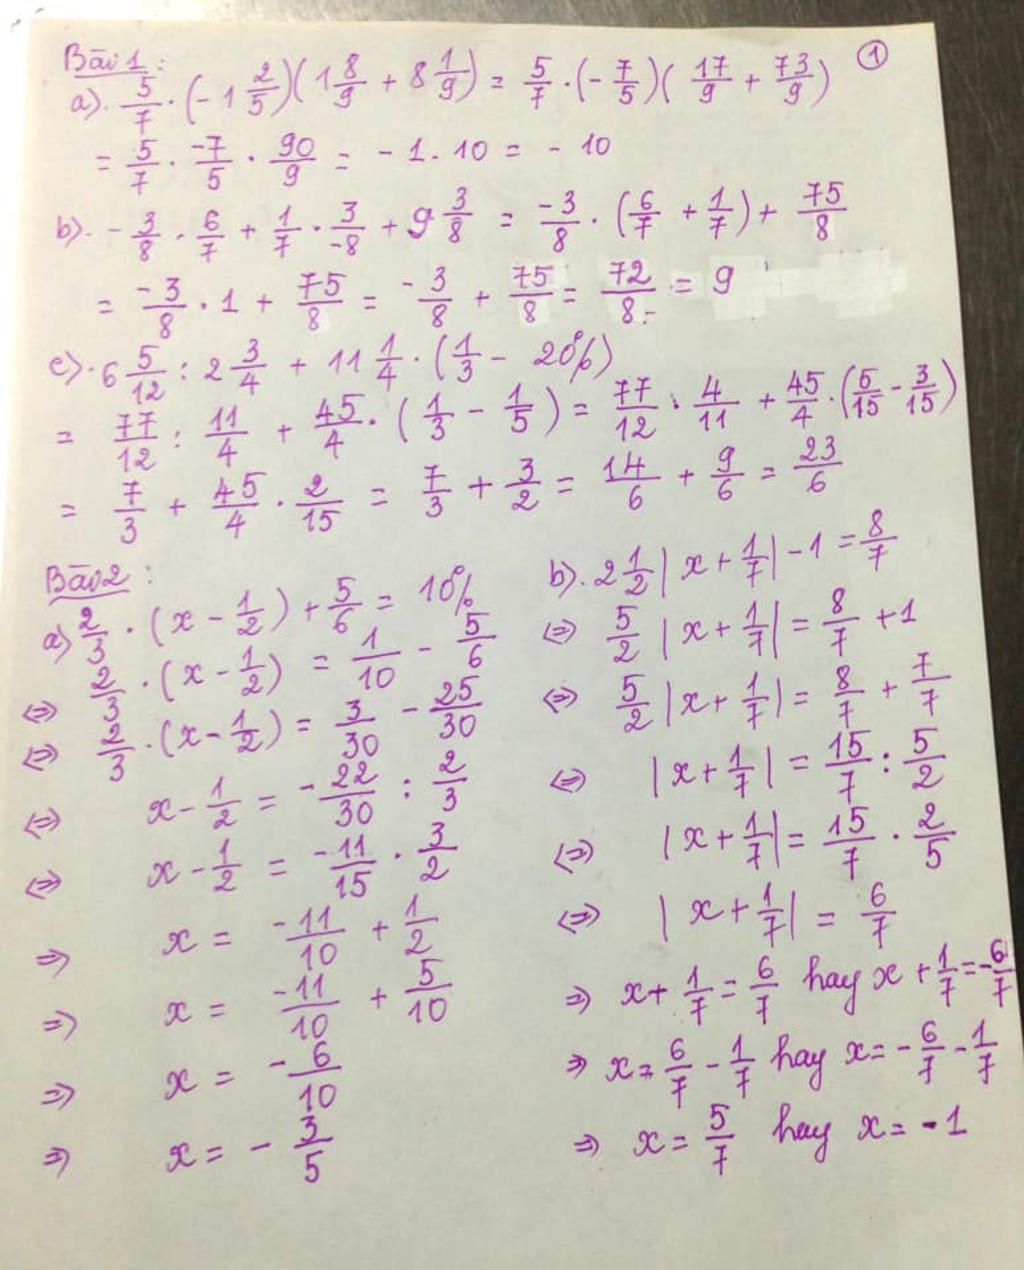 ①
Bài 1:
a). 5/7 . (-1 2/5)(1 8/9 + 8 1/9) = 5/7 . (-7/5)(17/9 + 73/9)
= 5/7 . -7/5 . 90/9 = - 1 . 10 = - 10
b). - 3/8 . 6/7 + 1/7 . 3/-8 + 9 3/8 = -3/8 . (6/7 + 1/7) + 75/8
= -3/8 . 1 + 75/8 = -3/8 + 75/8 = 72/8 = 9
c). 6 5/12 : 2 3/4 + 11 1/4 . (1/3 - 20%)
= 77/12 : 11/4 + 45/4 . (1/3 - 1/5) = 77/12 . 4/11 + 45/4 . (5/15 - 3/15)
= 7/3 + 45/4 . 2/15 = 7/3 + 3/2 = 14/6 + 9/6 = 23/6
Bài 2:
a) 2/3 . (x - 1/2) + 5/6 = 10%
⇔ 2/3 . (x - 1/2) = 1/10 - 5/6
⇔ 2/3 . (x - 1/2) = 3/30 - 25/30
⇔ x - 1/2 = - 22/30 : 2/3
⇔ x - 1/2 = -11/15 . 3/2
⇒ x = -11/10 + 1/2
⇒ x = -11/10 + 5/10
⇒ x = - 6/10
⇒ x = - 3/5
b). 2 1/2 | x + 1/7 | - 1 = 8/7
⇔ 5/2 | x + 1/7 | = 8/7 + 1
⇔ 5/2 | x + 1/7 | = 8/7 + 7/7
⇔ | x + 1/7 | = 15/7 : 5/2
⇔ | x + 1/7 | = 15/7 . 2/5
⇔ | x + 1/7 | = 6/7
⇒ x + 1/7 = 6/7 hay x + 1/7 = -6/7
⇒ x = 6/7 - 1/7 hay x = - 6/7 - 1/7
⇒ x = 5/7 hay x = - 1